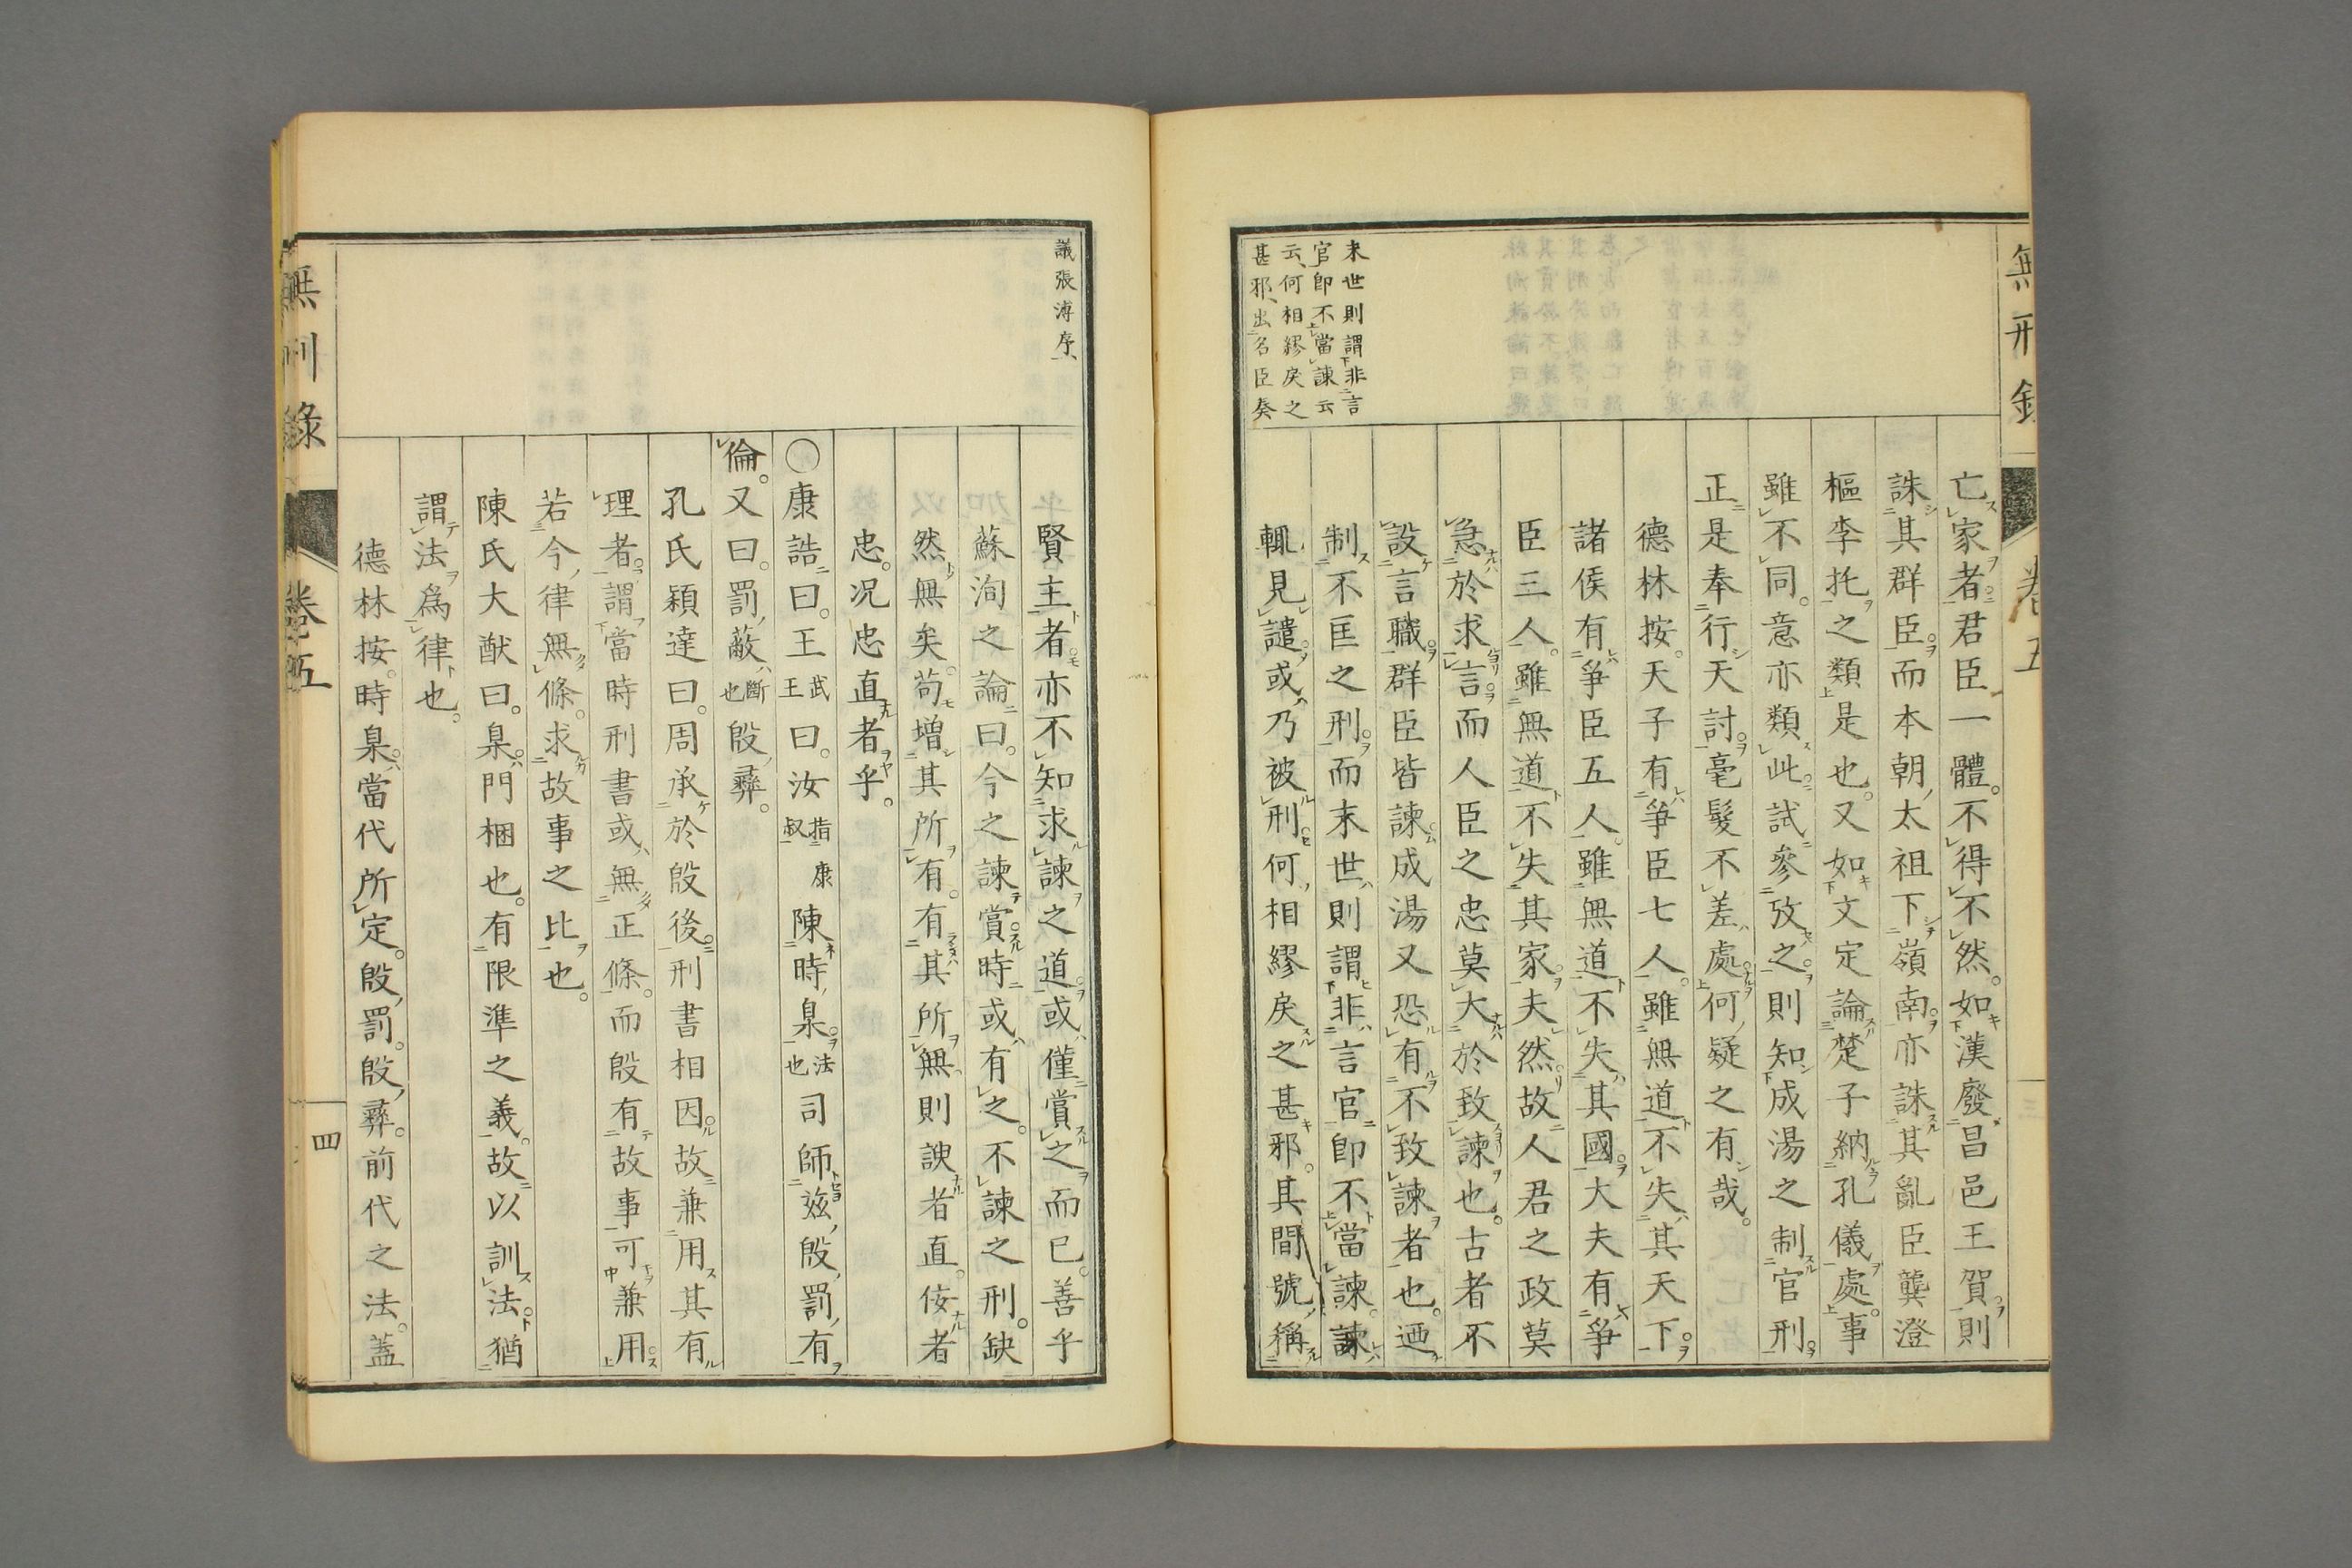 無刑録
卷五
亡家者君臣一體。不得不然。如漢廢昌邑王賀則
誅其群臣。而本朝太祖下嶺南亦誅其亂臣龔澄
樞李托之類是也。又如文定論楚子納孔儀處。事
雖不同。意亦類此。試參攷之則知成湯之制官刑。
正是奉行天討毫髮不差處。何疑之有哉。
德林按。天子有爭臣七人。雖無道不失其天下。
諸侯有爭臣五人。雖無道不失其國。大夫有爭
臣三人。雖無道不失其家。夫然故人君之政莫
急於求言。而人臣之忠莫大於致諫也。古者不
設言職。群臣皆諫成湯又恐有不致諫者也。迺
制不匡之刑。而末世則謂非言官即不當諫。諫
輒見譴或乃被刑。何相繆戾之甚邪。其間號稱
末世則謂非言
官即不當諫云
云、何相繆戾之
甚邪、出名臣奏
議張溥序、
賢主者亦不知求諫之道。或僅賞之而已。善乎
蘇洵之論曰。今之諫賞時或有之。不諫之刑。缺
然無矣。苟增其所有。有其所無則諛者直。佞者
忠。况忠直者乎。
○康誥曰。王武王曰。汝指康叔陳時臬法也司師玆殷罰有
倫。又曰。罰蔽斷也殷彛。
孔氏穎達曰。周承於殷後。刑書相因。故兼用其有
理者。謂當時刑書或無正條。而殷有故事可兼用
若今律無條。求故事之比也。
陳氏大猷曰。臬門梱也。有限準之義。故以訓法。猶
謂法爲律也。
德林按。時臬當代所定。殷罰。殷彛。前代之法。蓋
無刑錄
卷五
四